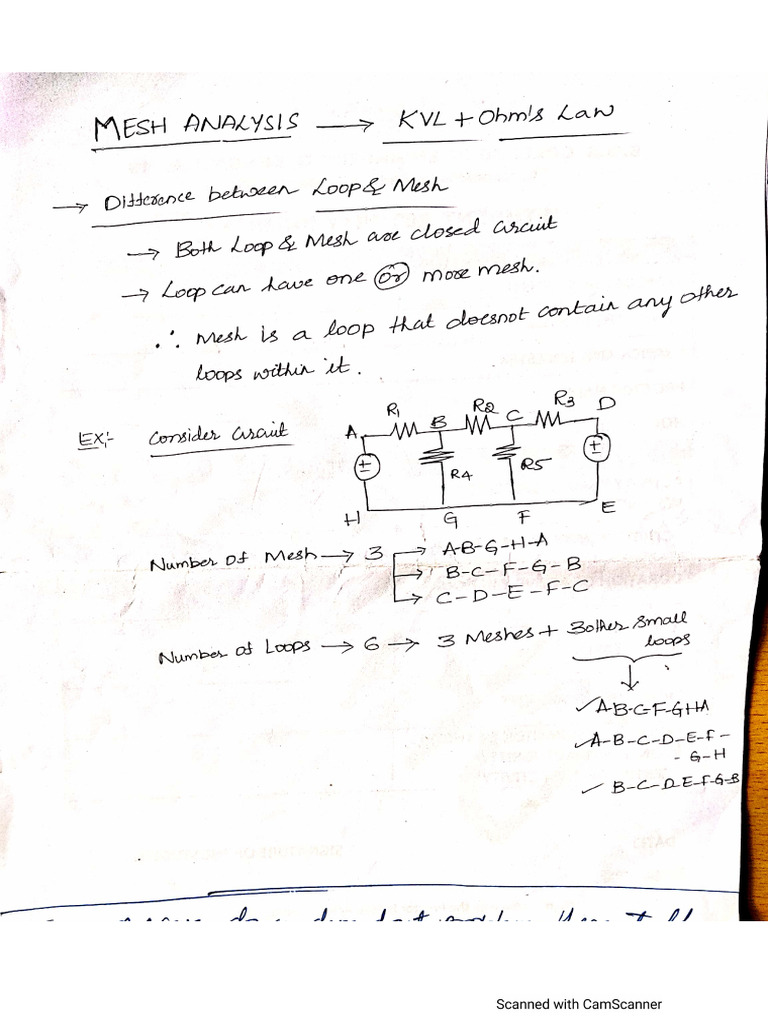 MESH ANALYSIS → KVL + Ohm's Law
→ Difference between Loop & Mesh
→ Both Loop & Mesh are closed circuit
→ Loop can have one or more mesh.
∴ Mesh is a loop that doesnot contain any other
loops within it.
EX:- Consider circuit
A R1 B R2 C R3 D
± R4 R5 ±
H G F E
Number of Mesh → 3 → A-B-G-H-A
→ B-C-F-G-B
→ C-D-E-F-C
Number of Loops → 6 → 3 Meshes + 3 other small
loops
✓ A-B-C-F-G-H-A
✓ A-B-C-D-E-F-
- G-H
✓ B-C-D-E-F-G-B
Scanned with CamScanner